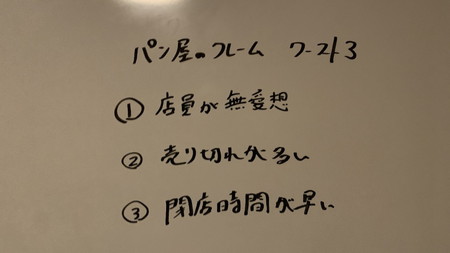 パン屋のフレーム ワースト3
① 店員が無愛想
② 売り切れが多い
③ 閉店時間が早い